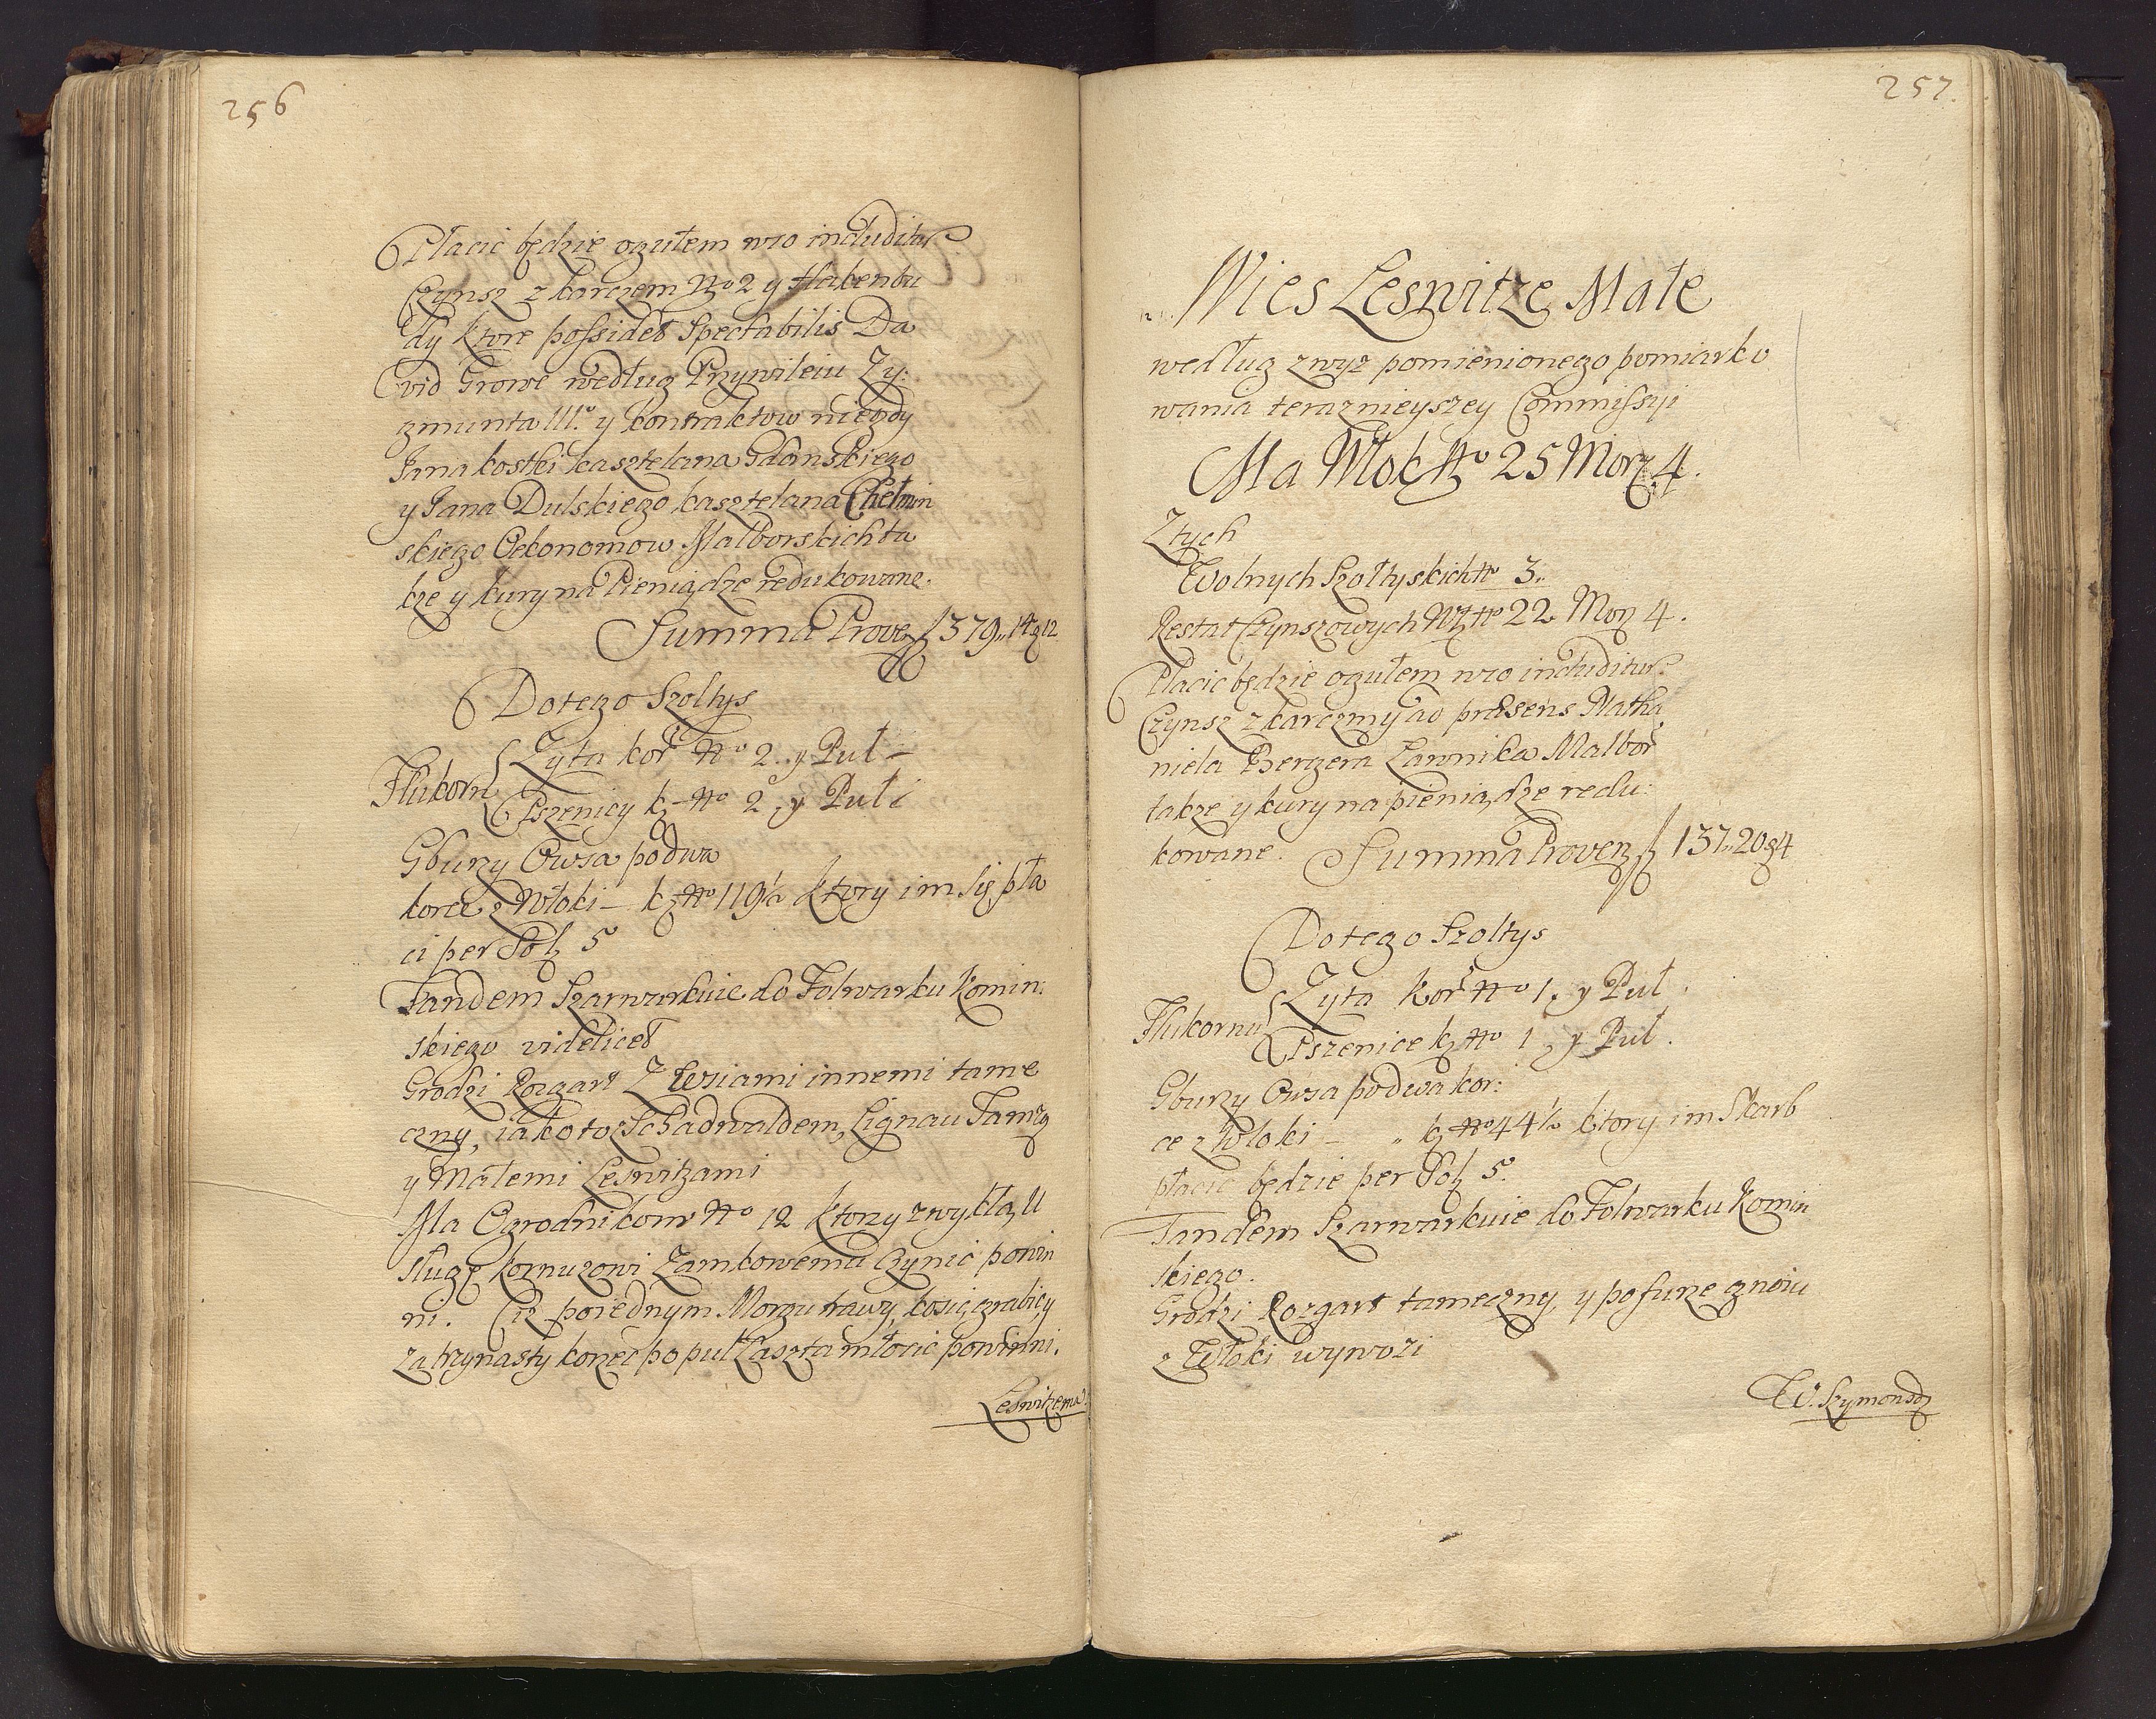 256
Płacic będzie ogułem wro includitur
Czynsz z karczem No 2 y Hakenbu
dy ktore possidet Spectabilis Da
vid Growe według Przywileiu Zy:
gmunta III.o y kontraktow niegdy
Jana kostki kasztelana Gdanskiego
y Jana Dulskiego kasztelana Chełmin
skiego Oekonomow Malborskich ta
kze y kury na Pieniądze redukowane.
Summa Prove fl 379. 14 g 12
Do tego Szoltys
Zyta kor No 2. y Puł -
Flukorn
Pszenicy k - No 2. y Puł
Gburzy Owsa po dwa
korce z Włoki - k No 119½ ktory im się pła
ci per Sol 5
Tandem Szarwarkuie do Folwarku Komin:
skiego videlicet
Grodzi Rozgart Z Wsiami innemi tame
czny, iako to Schadwaldem, Lignau
y Małemi Leswitzami
Ma Ogrodnikow No 12 ktorzy zwykłą U
sługę Kornuzowi Zamkowemu Czynic powin
ni. Ciz po iednym Morgu trawy, kosic, grabic, y
za trzynasty korzec po puł Łaszta młocic powinni.
Leswitze ma:
257.
Wies Leswitze Małe
według zwyz pomienionego pomiarko
wania teraznieyszey Commissyi
Ma Włok No 25 Morz. 4.
Z tych
Wolnych Szołtyskich No 3.
Restat Czynszowych Wł No 22 Morz 4.
Płacic będzie ogułem wro includitur
Czynsz z karczmy ad præsens Natha
niela Bergera Ławnika Malbor
takze y kury na pieniądze redu:
kowane. Summa Proven fl 137. 20 g 4
Do tego Szoltys
Zyta Kor No 1. y Puł.
Flukornu
Pszenice k No 1. y Puł.
Gburzy Owsa po dwa kor:
ce z Włoki - " k No 44½ ktory im Skarb
płacic będzie per Sol 5.
Tandem Szarwarkuie do Folwarku Komin
skiego.
Grodzi Rozgart tameczny, y po furze gnoiu
z Włoki wywozi
W. Szymonsd